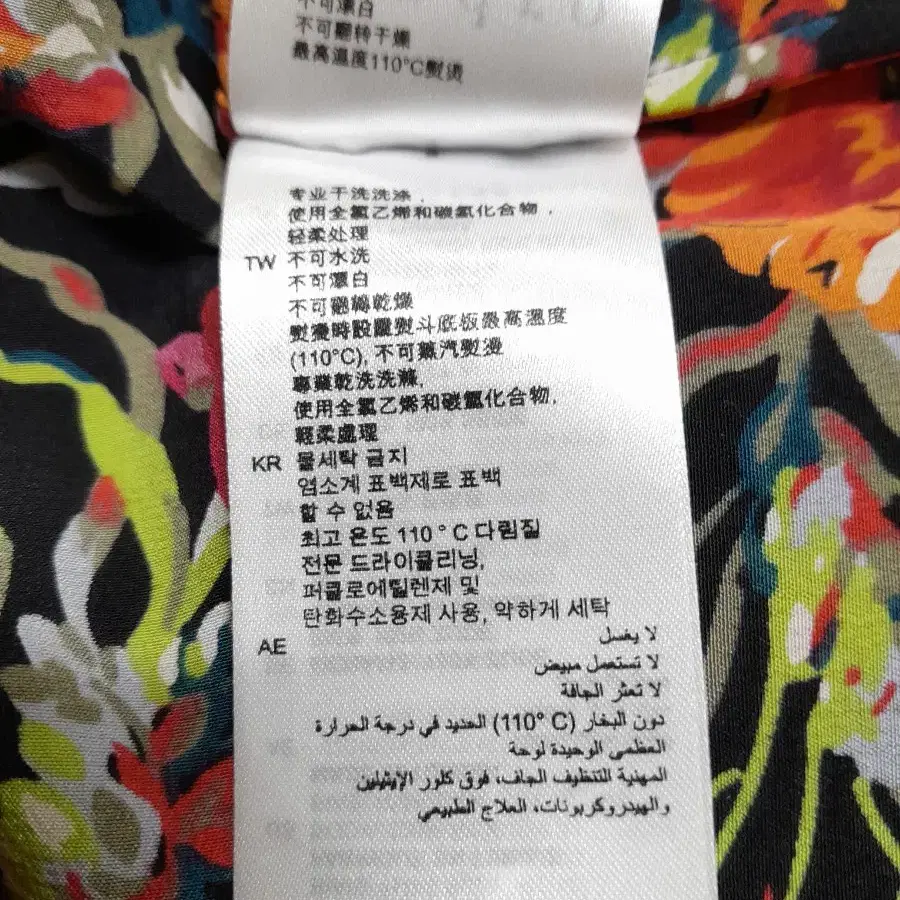 不可漂白
不可翻转干燥
最高溫度110°C熨烫
专业干洗洗涤.
使用全氯乙烯和碳氢化合物.
轻柔处理
TW 不可水洗
不可漂白
不可翻轉乾燥
熨燙時設置熨斗底板最高溫度
(110°C), 不可蒸汽熨燙
專業乾洗洗滌.
使用全氯乙烯和碳氫化合物.
輕柔處理
KR 물세탁 금지
염소계 표백제로 표백
할 수 없음
최고 온도 110 ° C 다림질
전문 드라이클리닝,
퍼클로에틸렌제 및
탄화수소용제 사용, 약하게 세탁
AE لا يغسل
لا تستعمل مبيض
لا تعثر الجافة
دون البخار (110° C) الحديد في درجة الحرارة
العظمى الوحيدة لوحة
المهنية التنظيف الجاف، فوق كلور الإيثيلين
والهيدروكربونات، العلاج الطبيعي